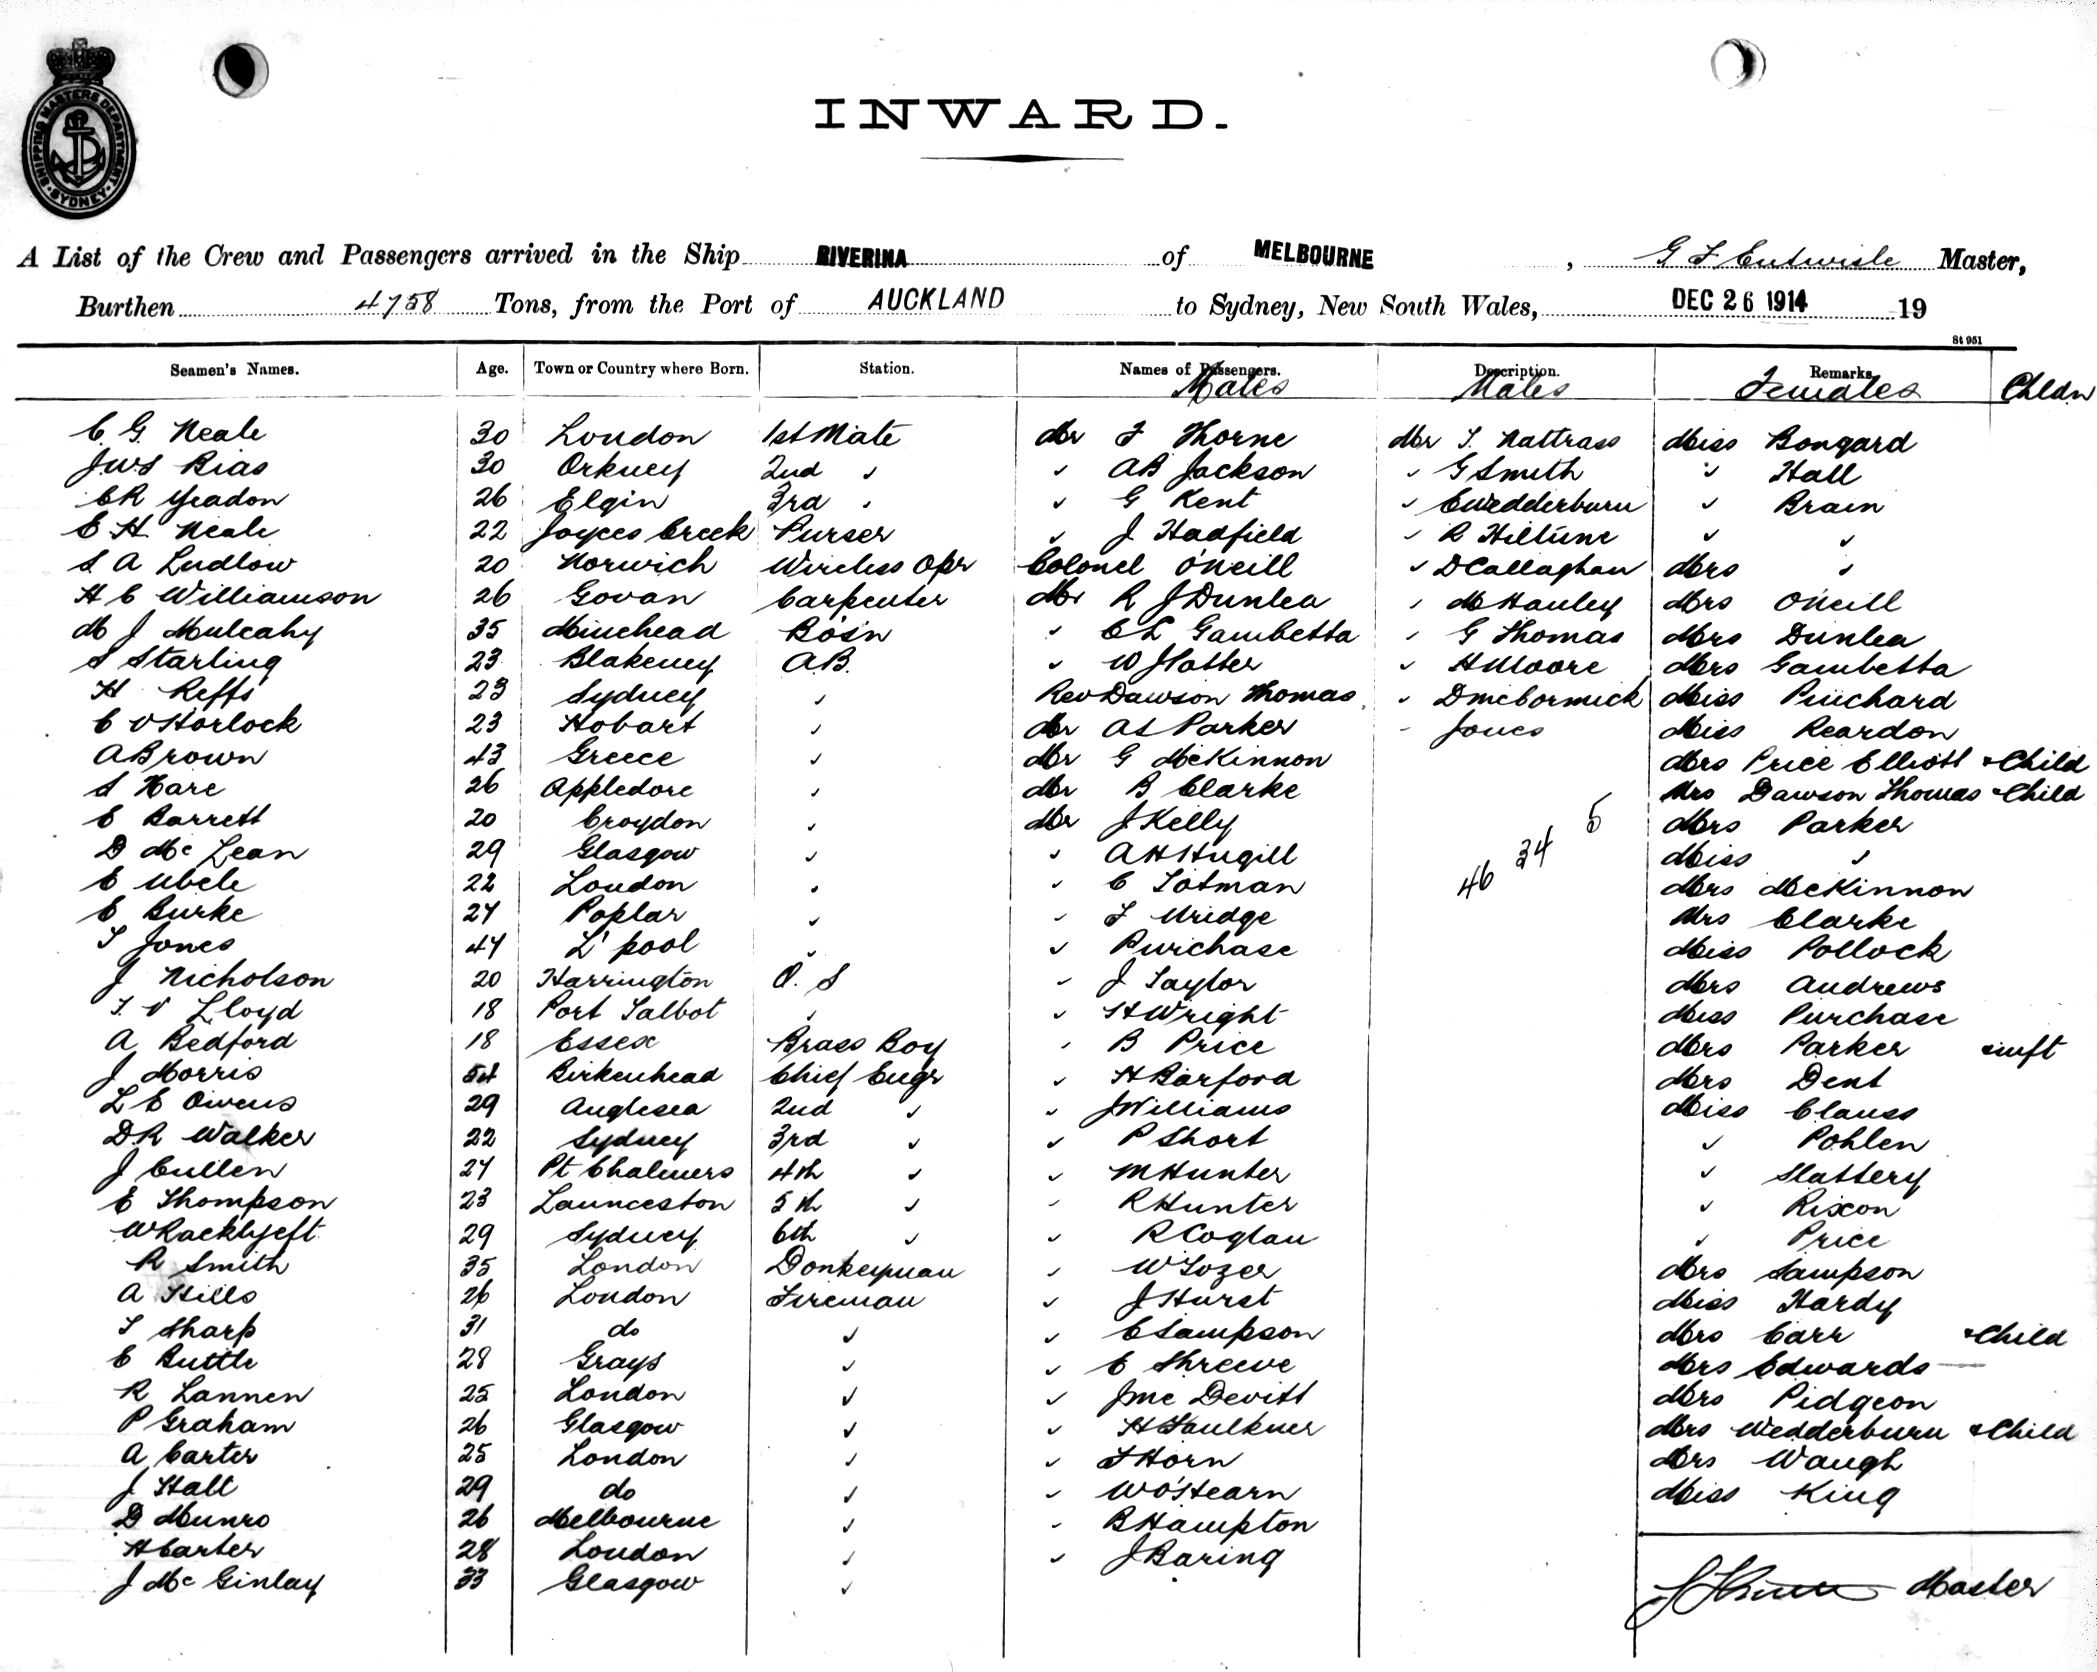 SHIPPING MASTERS DEPARTMENT SYDNEY
INWARD.
A List of the Crew and Passengers arrived in the Ship RIVERINA of MELBOURNE , G F Entwisle Master,
Burthen 4758 Tons, from the Port of AUCKLAND to Sydney, New South Wales, DEC 26 1914 19
St 951
Seamen's Names. Age. Town or Country where Born. Station. Names of Passengers. Description. Remarks
Males Males Females Childn
C G Neale 30 London 1st Mate Mr F Thorne Mr T. Nattrass Miss Bongard
JWS Bias 30 Orkney 2nd " " AB Jackson " G Smith " Hall
CR Yeadon 26 Elgin 3rd " " G Kent " C Wedderburn " Brain
E H Neale 22 Joyces Creek Purser " J Hadfield " R Hiltune " "
S A Ludlow 20 Norwich Wireless Opr Colonel O'Neill " D Callaghan Mrs "
H C Williamson 26 Govan Carpenter Mr R J Dunlea " M Hanley Mrs O'Neill
M J Mulcahy 35 Minehead Bosn " C L Gambetta " G Thomas Mrs Dunlea
S Starling 23 Blakeney A.B. " W J Potter " H Moore Mrs Gambetta
H Reffs 23 Sydney " Rev Dawson Thomas " D McCormick Miss Pinchard
C V Horlock 23 Hobart " Mr AS Parker " Jones Miss Reardon
A Brown 43 Greece " Mr G McKinnon Mrs Price Elliott & Child
S Hare 26 Appledore " Mr B Clarke Mrs Dawson Thomas & Child
E Barrett 20 Croydon " Mr J Kelly 5 Mrs Parker
D Mc Lean 29 Glasgow " " A H Hugill 34 Miss "
E Ubele 22 London " " C Totman 46 Mrs McKinnon
E Burke 24 Poplar " " F Uridge Mrs Clarke
T Jones 44 L'pool " " Purchase Miss Pollock
J Nicholson 20 Harrington O. S " J Taylor Mrs Andrews
T V Lloyd 18 Port Talbot " " H Wright Miss Purchase
A Bedford 18 Essex Brass Boy " B Price Mrs Parker & inft
J Morris 54 Birkenhead Chief Engr " H Barford Mrs Dent
L E Owens 29 Anglesea 2nd " " J Williams Miss Clauss
D.R Walker 22 Sydney 3rd " " P Short " Pohlen
J Cullen 24 Pt Chalmers 4th " " M Hunter " Slattery
E Thompson 23 Launceston 5th " " R Hunter " Rixon
W Racklyeft 29 Sydney 6th " " R Coglan " Price
R Smith 35 London Donkeyman " W Tozer Mrs Sampson
A Hills 26 London Fireman " J Hurst Miss Hardy
T Sharp 31 do " " C Sampson Mrs Carr & Child
E Buttle 28 Grays " " E Shreeve Mrs Edwards
R Lannen 25 London " " J Mc Devitt Mrs Pidgeon
P Graham 26 Glasgow " " H Faulkner Mrs Wedderburn & Child
A Carter 25 London " " F Horn Mrs Waugh
J Hall 29 do " " W O'Hearn Miss King
D Munro 26 Melbourne " " B Hampton
H Carter 28 London " " J Baring
J Mc Ginlay 33 Glasgow "
Master